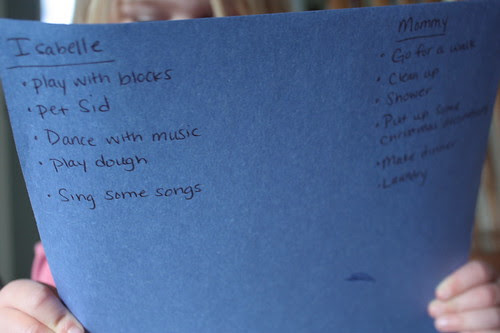 Isabelle
• play with blocks
• pet Sid
• Dance with music
• Play dough
• Sing some songs
Mommy
• Go for a walk
• Clean up
• Shower
• Put up some
christmas decorations
• Make dinner
• Laundry